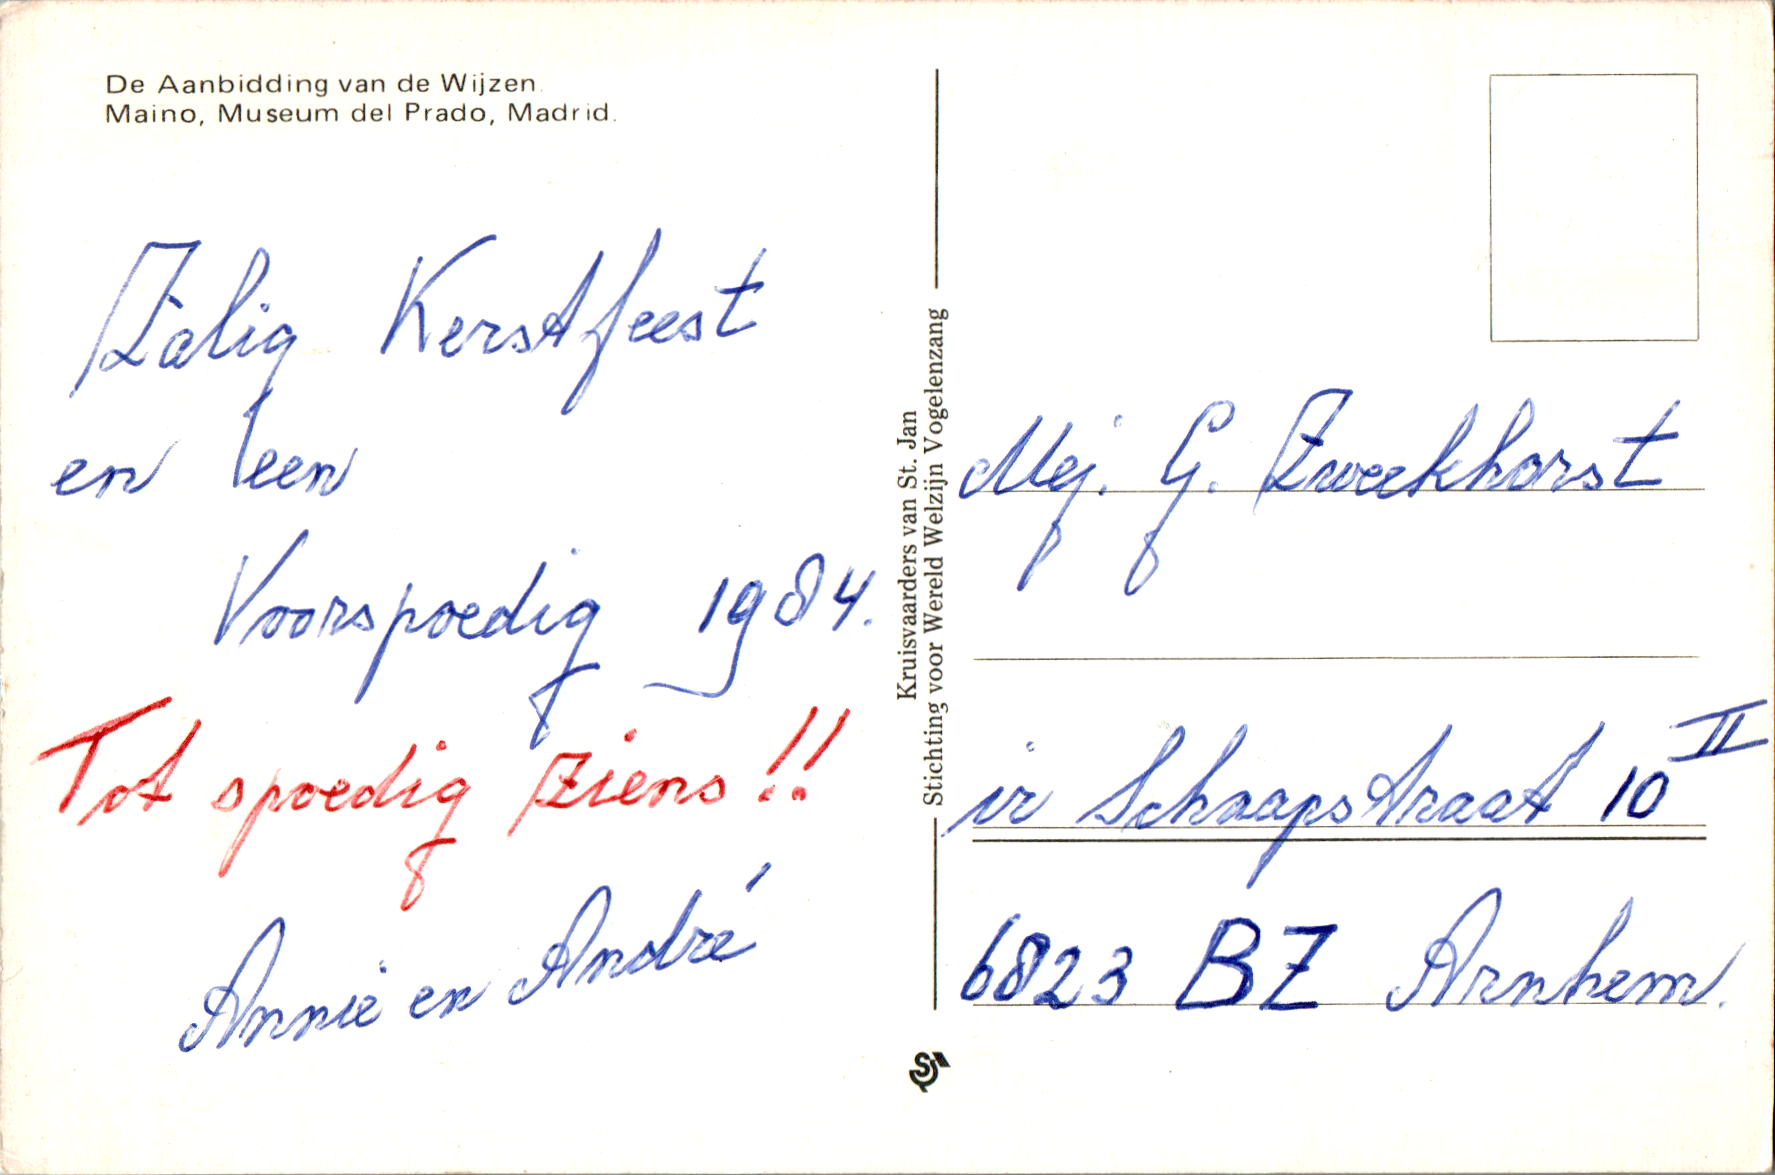 De Aanbidding van de Wijzen.
Maino, Museum del Prado, Madrid.
Zalig Kerstfeest
en een
Voorspoedig 1984.
Tot spoedig ziens!!
Annie en André
Kruisvaarders van St. Jan
Stichting voor Wereld Welzijn Vogelenzang
Mej. G. Zweekhorst
ir Schaapstraat 10 II
6823 BZ Arnhem.